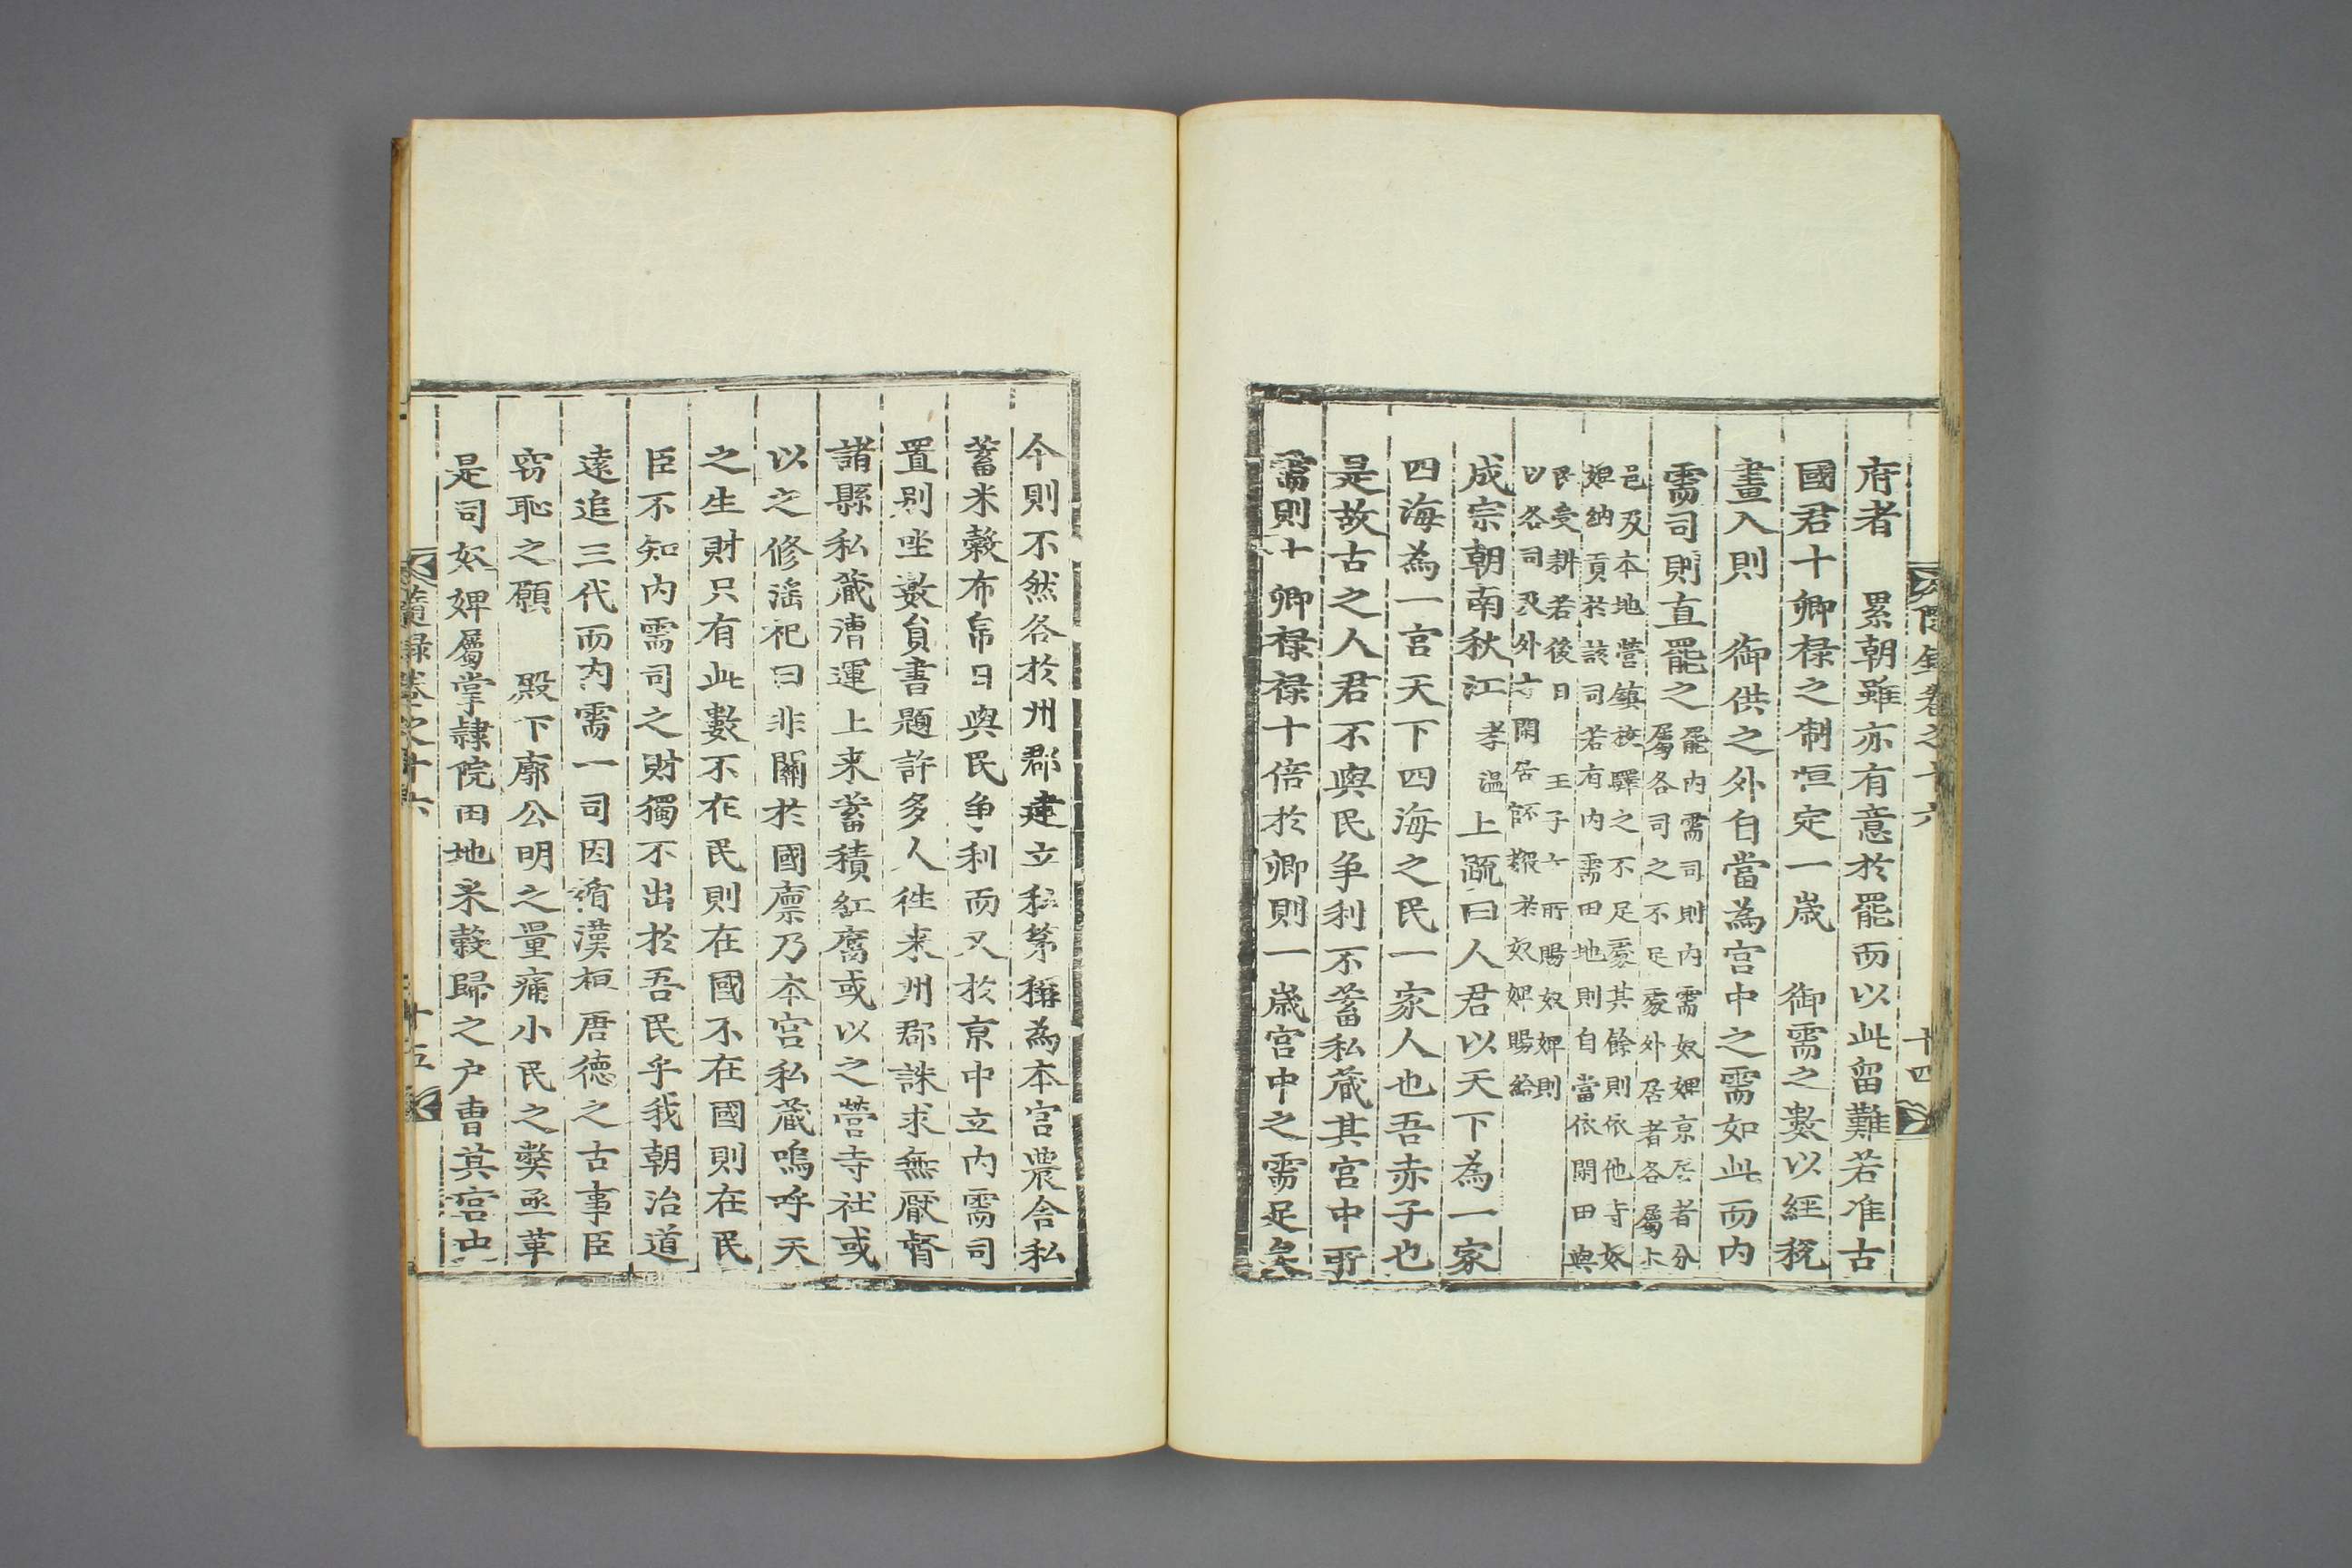 隨錄卷之十六 十四
府者 累朝雖亦有意於罷而以此留難若准古
國君十卿祿之制恒定一歲 御需之數以經稅
畫入則 御供之外自當為宮中之需如此而內
需司則直罷之
罷內需司則內需奴婢京居者分
屬各司之不足處外居者各屬本
邑及本地營鎮校驛之不足處其餘則依他寺奴
婢納貢於該司若有內需田地則自當依閑田與
民受耕若後日 王子女所賜奴婢則
以各司及外方閑居所報於奴婢賜給
成宗朝南秋江孝溫上疏曰人君以天下為一家
四海為一宮天下四海之民一家人也吾赤子也
是故古之人君不與民爭利不蓄私藏其宮中所
需則十卿祿祿十倍於卿則一歲宮中之需足矣
今則不然各於州郡建立私第稱為本宮農舍私
蓄米穀布帛日與民爭利而又於京中立內需司
置別坐數員書題許多人往來州郡誅求無厭督
諸縣私藏漕運上來蓄積紅腐或以之營寺社或
以之修淫祀曰非關於國廩乃本宮私藏嗚呼天
之生財只有此數不在民則在國不在國則在民
臣不知內需司之財獨不出於吾民乎我朝治道
遠追三代而內需一司因循漢桓唐德之古事臣
竊恥之願 殿下廓公明之量痛小民之獘亟革
是司奴婢屬掌隷院田地米穀歸之户曹其宮中
隨錄卷之十六 十五